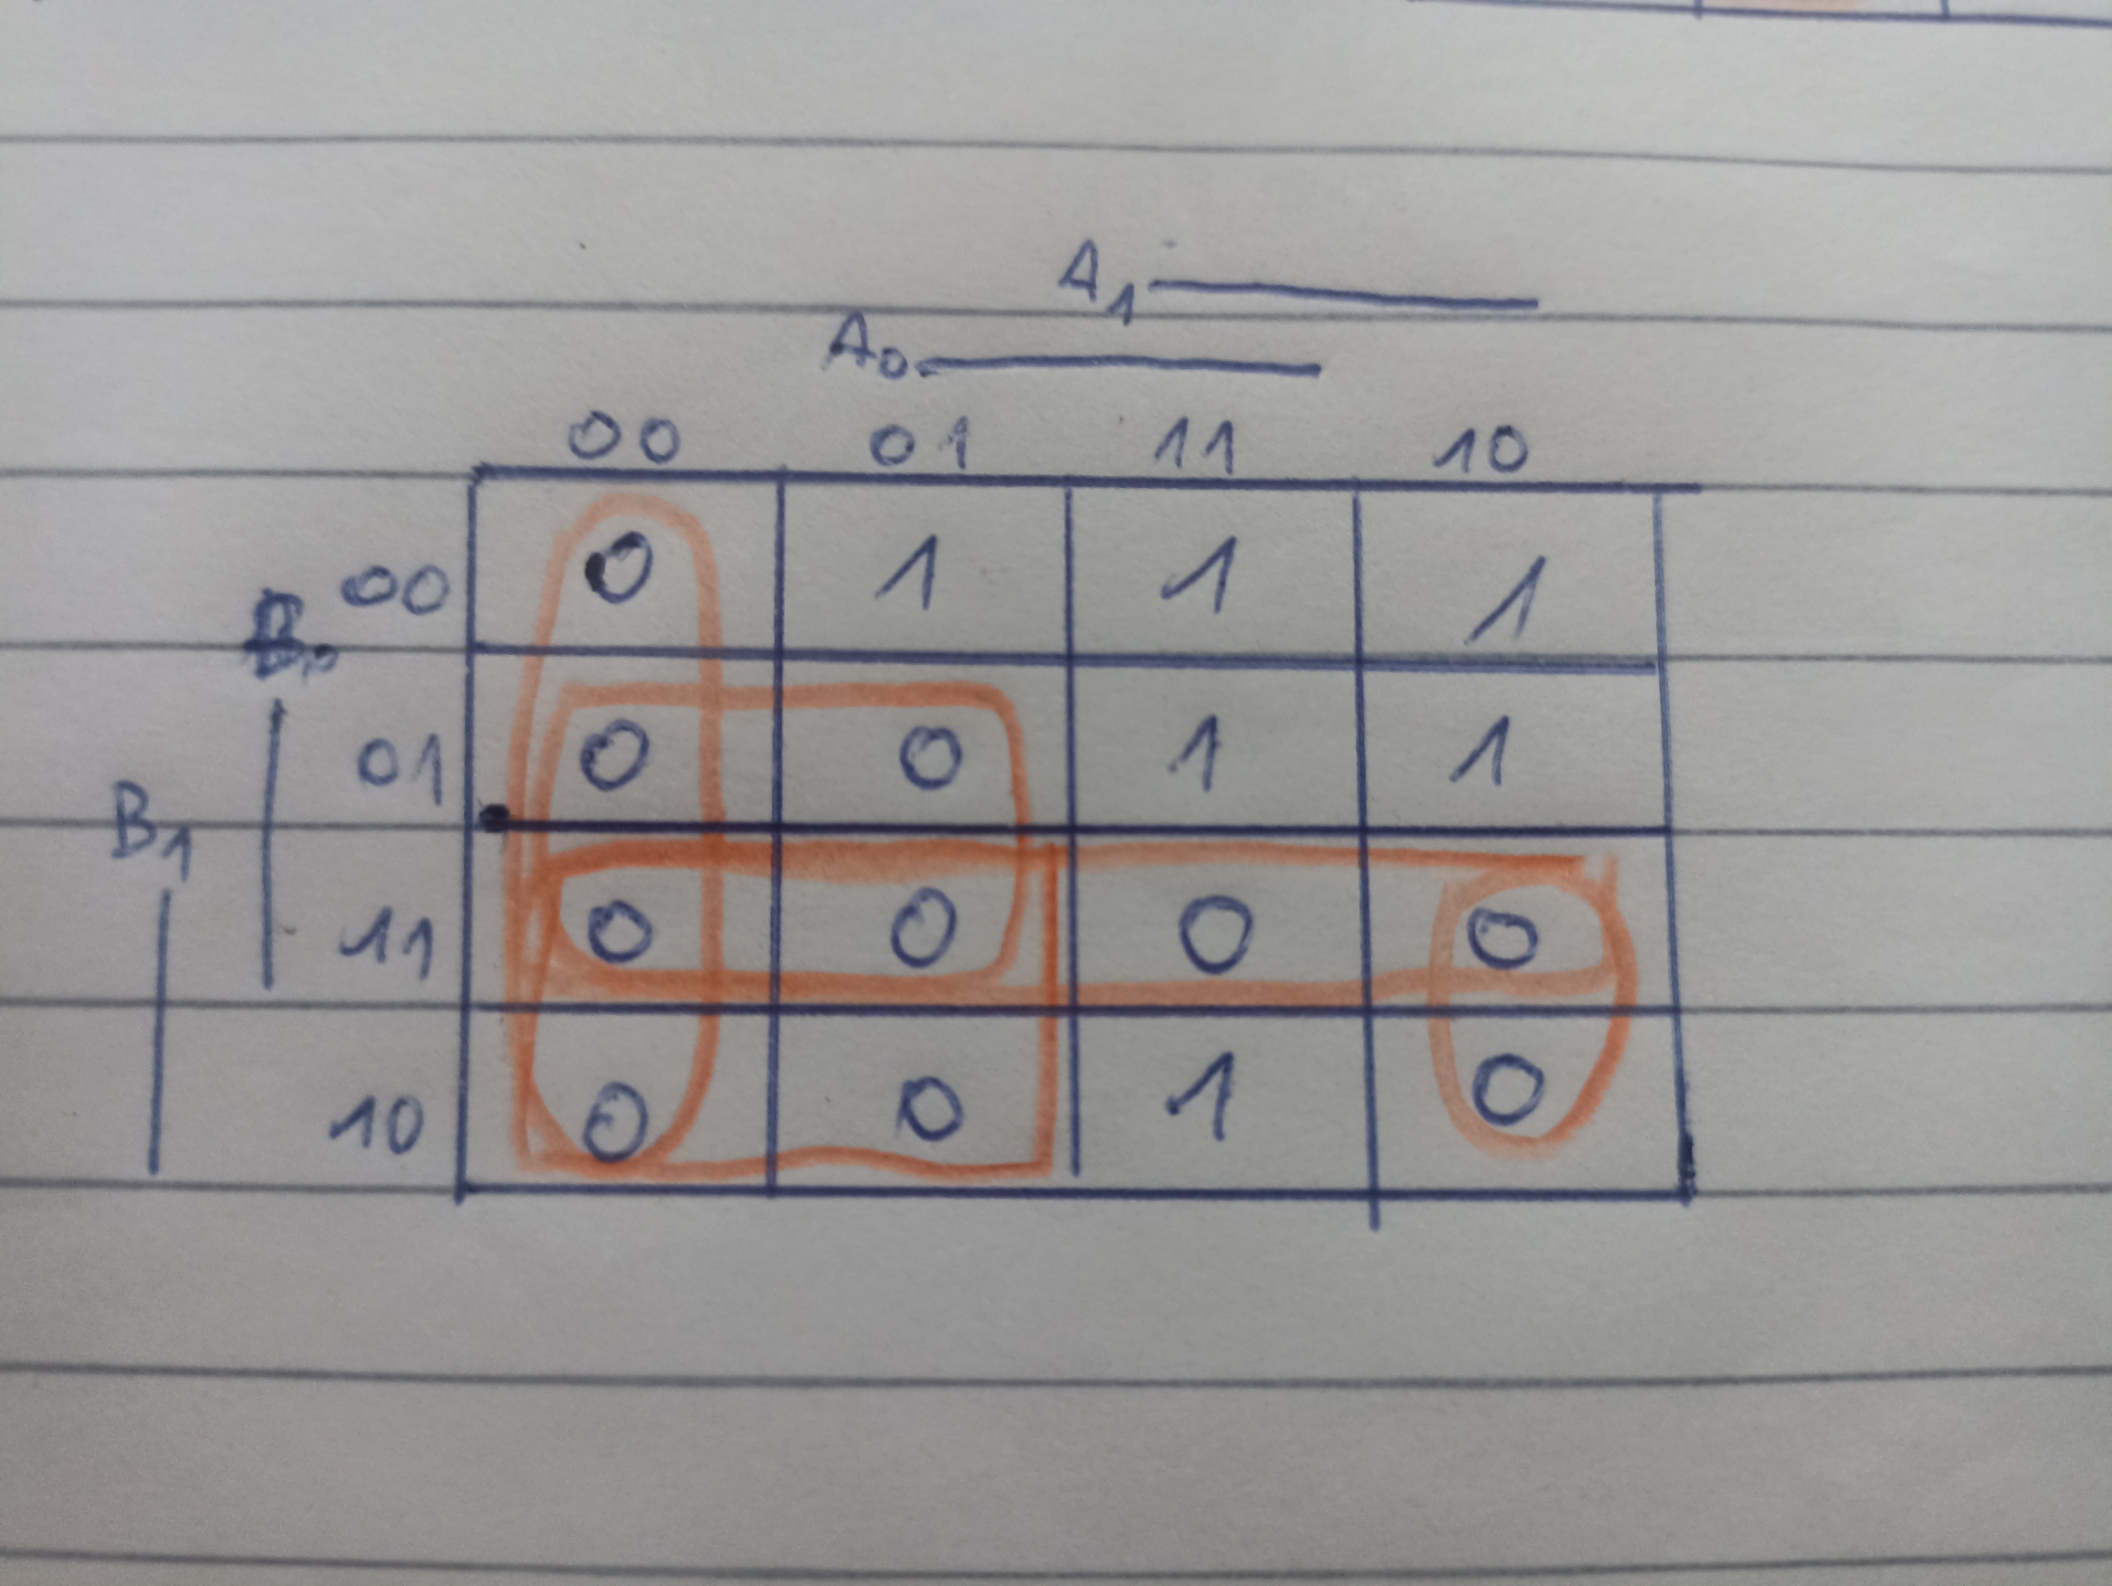 A₁
A₀
00 01 11 10
B₀ 00 0 1 1 1
01 0 0 1 1
B₁
11 0 0 0 0
10 0 0 1 0